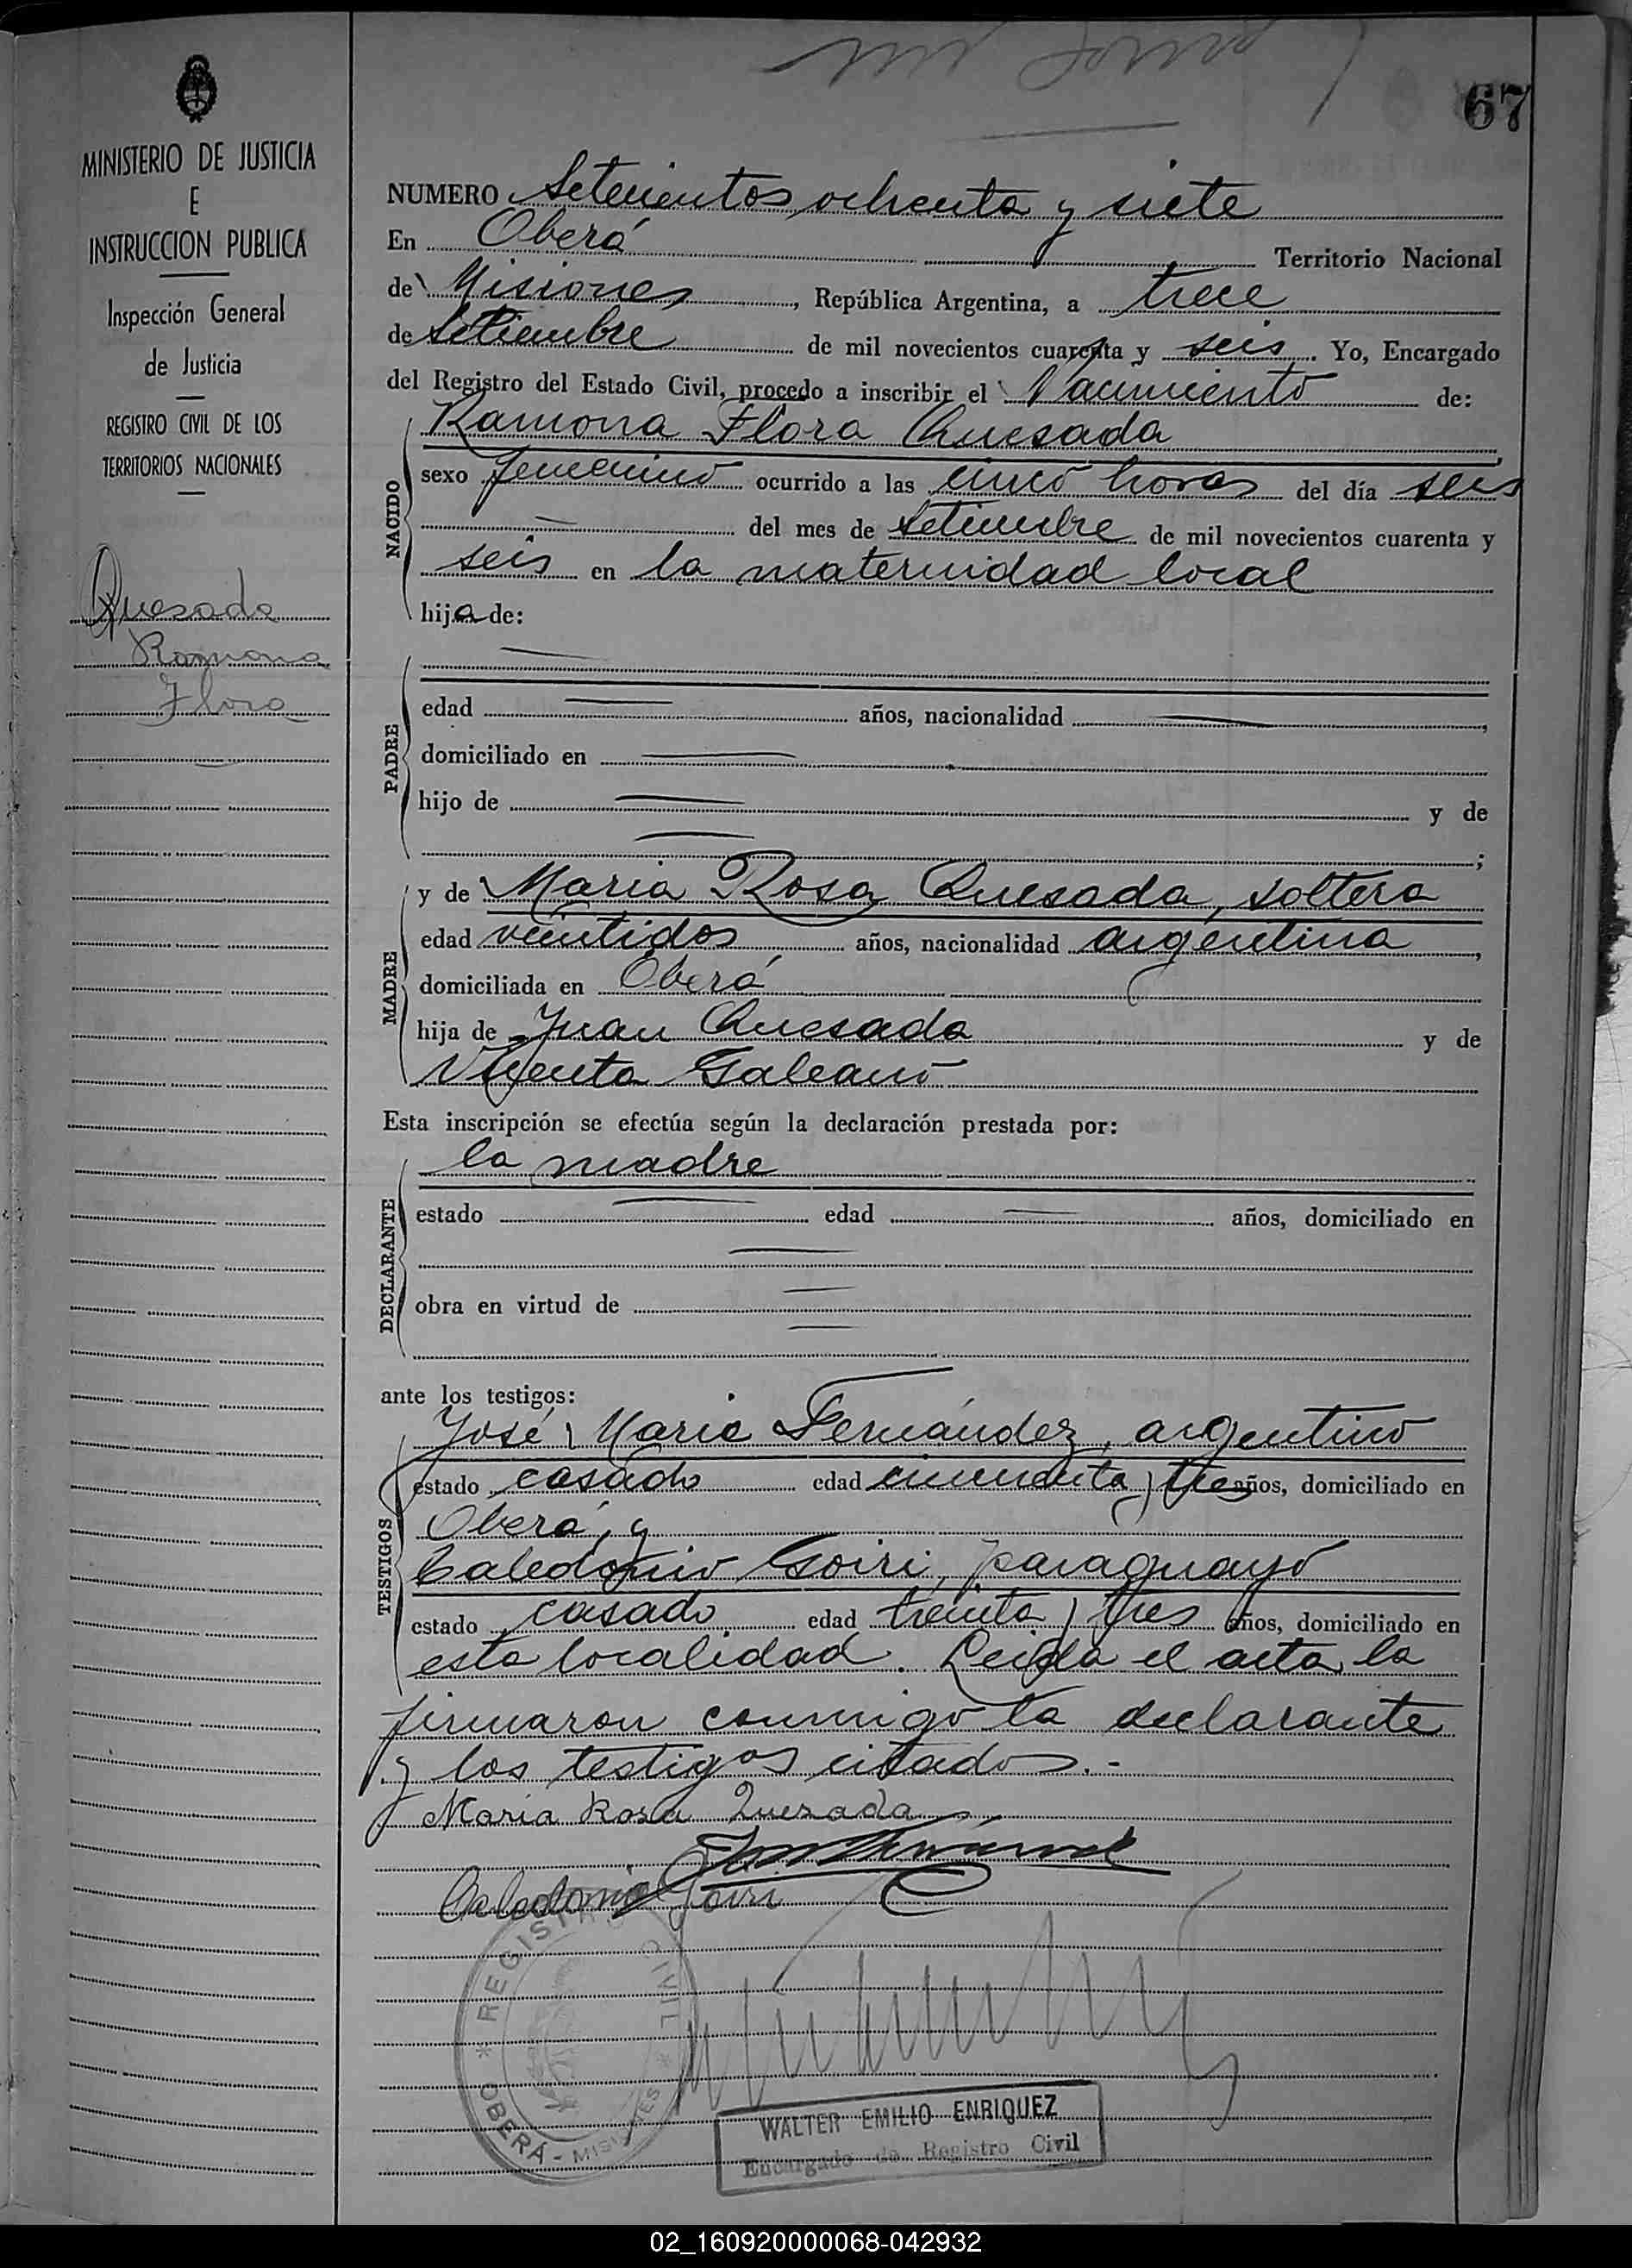 67
MINISTERIO DE JUSTICIA
E
INSTRUCCION PUBLICA
Inspección General
de Justicia
REGISTRO CIVIL DE LOS
TERRITORIOS NACIONALES
Quesada
Ramona
Flora
NUMERO Setecientos ochenta y siete
En Oberá Territorio Nacional
de Misiones, República Argentina, a trece
de Setiembre de mil novecientos cuarenta y seis. Yo, Encargado
del Registro del Estado Civil, procedo a inscribir el Nacimiento de:
NACIDO
Ramona Flora Quesada
sexo femenino ocurrido a las cinco horas del día seis
— del mes de Setiembre de mil novecientos cuarenta y
seis en la maternidad local
hija de:
PADRE
—
edad — años, nacionalidad —,
domiciliado en —
hijo de — y de
— ;
MADRE
y de Maria Rosa Quesada, soltera
edad veintidos años, nacionalidad argentina,
domiciliada en Oberá
hija de Juan Quesada y de
Vicenta Galeano
Esta inscripción se efectúa según la declaración prestada por:
DECLARANTE
la madre
estado — edad — años, domiciliado en
—
obra en virtud de —
—
ante los testigos:
TESTIGOS
José Maria Fernández, argentino
estado casado edad cincuenta y tres años, domiciliado en
Oberá, y
Caledonio Goiri, paraguayo
estado casado edad treinta y tres años, domiciliado en
esta localidad. Leida el acta, la
firmaron conmigo la declarante
y los testigos citados.-
Maria Rosa Quesada
Caledonio Goiri
REGISTRO CIVIL
* OBERÁ - MISIONES *
WALTER EMILIO ENRIQUEZ
Encargado de Registro Civil
02_160920000068-042932